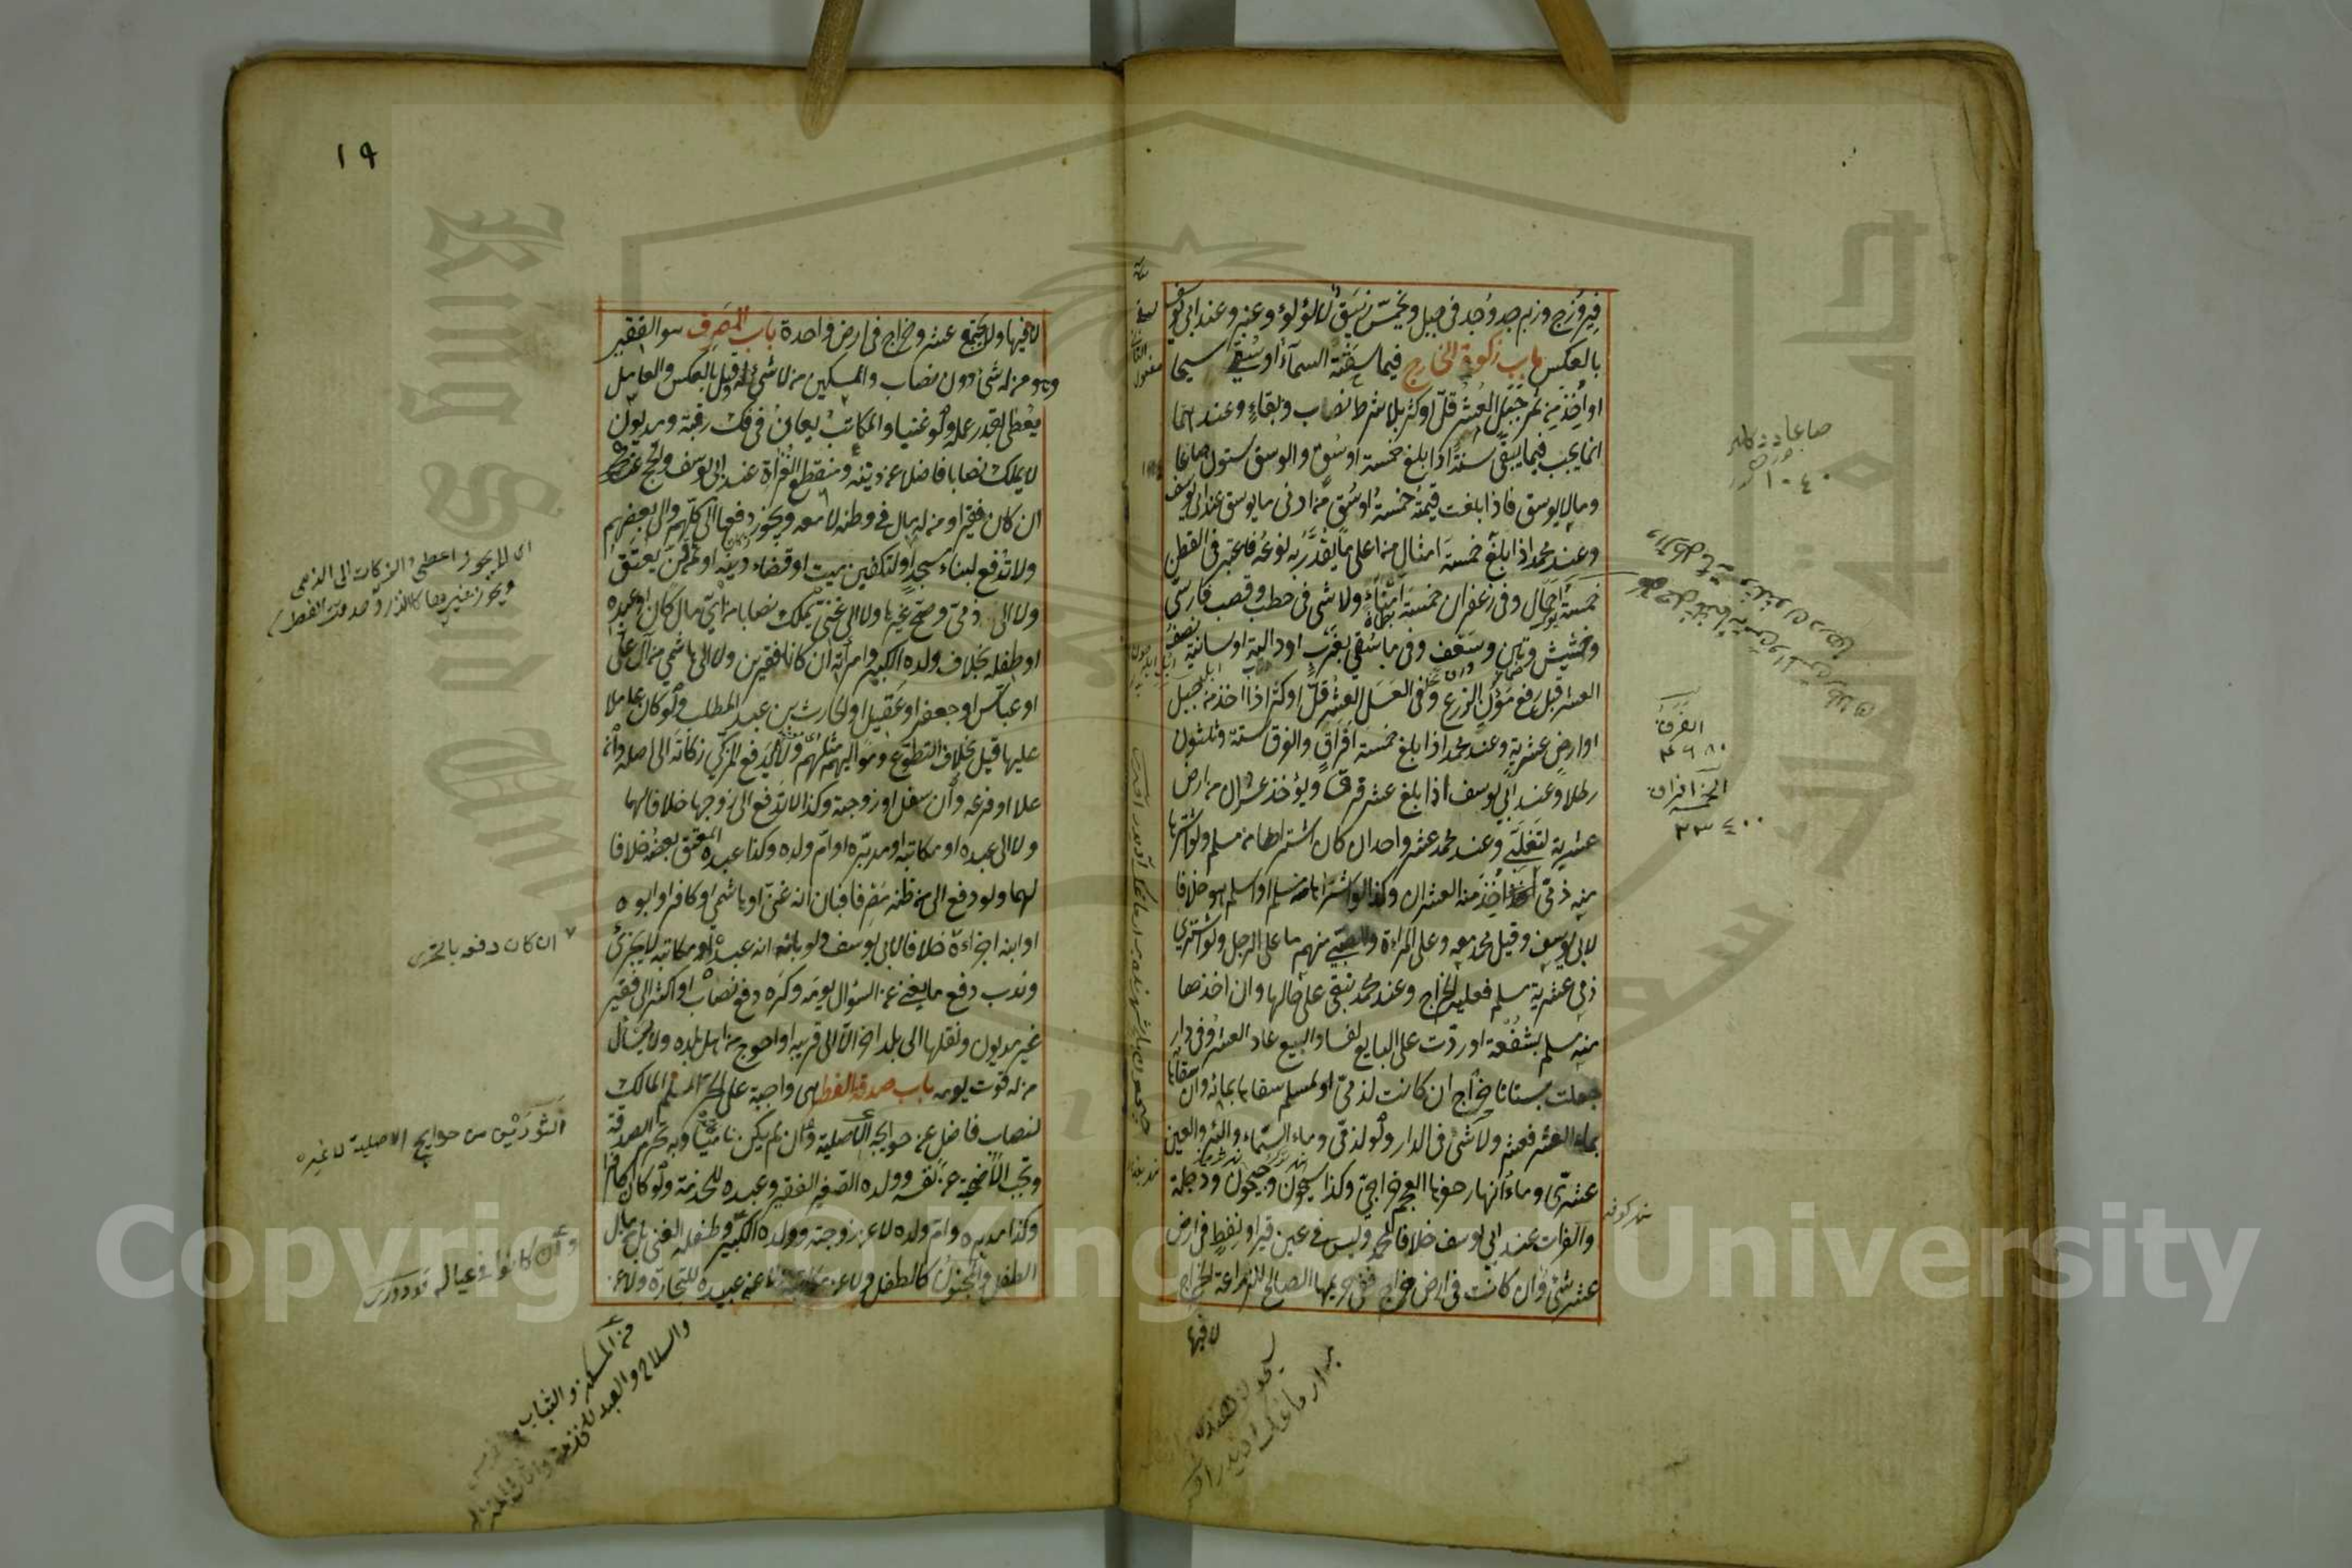 فيروزج وزمرد وجد في جبل ويخمس زيبق لا لؤلؤ وعنبر وعند ابي يوسف
بالعكس باب زكوة الخارج فيما سقته السماء او سقي سيحا
او اخذ من ثمر جبل العشر قل او كثر بلا شرط نصاب وبقاء وعندهما
انما يجب فيما يبقى سنة اذا بلغ خمسة اوسق والوسق ستون صاعا
وما لا يوسق فاذا بلغت قيمته خمسة اوسق من ادنى ما يوسق عند ابي يوسف
وعند محمد اذا بلغ خمسة امثال من اعلى ما يقدر به نوعه فاعتبر في القطن
خمسة احمال وفي زعفران خمسة امناء ولا شئ في حطب وقصب فارسي
وحشيش وتبن وسعف وفي ما سقي بغرب او دالية او سانية نصف
العشر قبل رفع مؤن الزرع وفي العسل العشر قل او كثر اذا اخذ من جبل
او ارض عشرية وعند محمد اذا بلغ خمسة افراق والفرق ستة وثلثون
رطلا وعند ابي يوسف اذا بلغ عشر قرب ويؤخذ عشران من ارض
عشرية لتغلبي وعند محمد عشر واحد ان كان اشتراها من مسلم ولو اشتراها
منه ذمي اخذ منه العشران وكذا لو اشتراها منه مسلم او اسلم هو خلافا
لابي يوسف وقيل محمد معه وعلى المرءة والصبي منهم ما على الرجل ولو اشترى
ذمي عشرية مسلم فعليه الخراج وعند محمد تبقى على حالها وان اخذها
منه مسلم بشفعة او ردت على البايع لفساد البيع عاد العشر وفي دار
جعلت بستانا خراج ان كانت لذمي او لمسلم سقاها بمائه وان سقاها
بماء العشر فعشر ولا شئ في الدار ولو لذمي وماء السماء والبئر والعين
عشري وماء انهار حفرها العجم خراجي وكذا سيحون وجيحون ودجلة
والفرات عند ابي يوسف خلافا لمحمد وليس في عين قير او نفط في ارض
عشر شئ وان كانت في ارض خراج ففي حريمها الصالح للزراعة الخراج
لا فيها
الفرق
الخمسة افراق
١٩
لا فيها ولا يجتمع عشر وخراج في ارض واحدة باب المصرف هو الفقير
وهو من له شئ دون نصاب والمسكين من لا شئ له وقيل بالعكس والعامل
يعطى بقدر عمله ولو غنيا والمكاتب يعان في فك رقبته ومديون
لا يملك نصابا فاضلا عن دينه ومنقطع الغزاة عند ابي يوسف والحج عند محمد
ان كان فقيرا ومن له مال في وطنه لا معه ويجوز دفعها الى كلهم والى بعضهم
ولا تدفع لبناء مسجد او لتكفين ميت او قضاء دينه او ثمن قن يعتق
ولا الى ذمي وصح غيرها ولا الى غني يملك نصابا من اي مال كان او عبده
او طفله بخلاف ولده الكبير وامرأته ان كانا فقيرين ولا الى هاشمي من آل علي
او عباس او جعفر او عقيل او الحارث بن عبد المطلب ولو كان عاملا
عليها قيل بخلاف التطوع ومواليهم مثلهم ولا يدفع المزكي زكاته الى اصله وان
علا او فرعه وان سفل او زوجته وكذا لا تدفع الى زوجها خلافا لهما
ولا الى عبده او مكاتبه او مدبره او ام ولده وكذا عبده المعتق بعضه خلافا
لهما ولو دفع الى من ظنه مصرفا فبان انه غني او هاشمي او كافر او ابوه
او ابنه اجزاءه خلافا لابي يوسف ولو بان انه عبده او مكاتبه لا يجزئ
وندب دفع ما يغني عن السؤال يومه وكره دفع نصاب او اكثر الى فقير
غير مديون ونقلها الى بلد اخر الا الى قريبه او احوج من اهل بلده ولا يسأل
من له قوت يومه باب صدقة الفطر هي واجبة على الحر المسلم المالك
لنصاب فاضل عن حوايجه الاصلية وان لم يكن ناميا وبه تحرم الصدقة
وتجب الاضحية عن نفسه وولده الصغير الفقير وعبده للخدمة ولو كان كافرا
وكذا مدبره وام ولده لا عن زوجته وولده الكبير وطفله الغني بل من مال
الطفل والمجنون كالطفل ولا عن مكاتبه ولا عن عبيده للتجارة ولا عن
اي لا يجوز اعطى الزكات الى الذمي
ويجوز غيرها كالنذر وصدقة الفطر
ان كان دفعه بالتحرى
من حوايج الاصلية لا غيره
وان كانوا في عياله
من المسكن والثياب
والسلاح والعبد للخدمة
Copyright © King Saud University